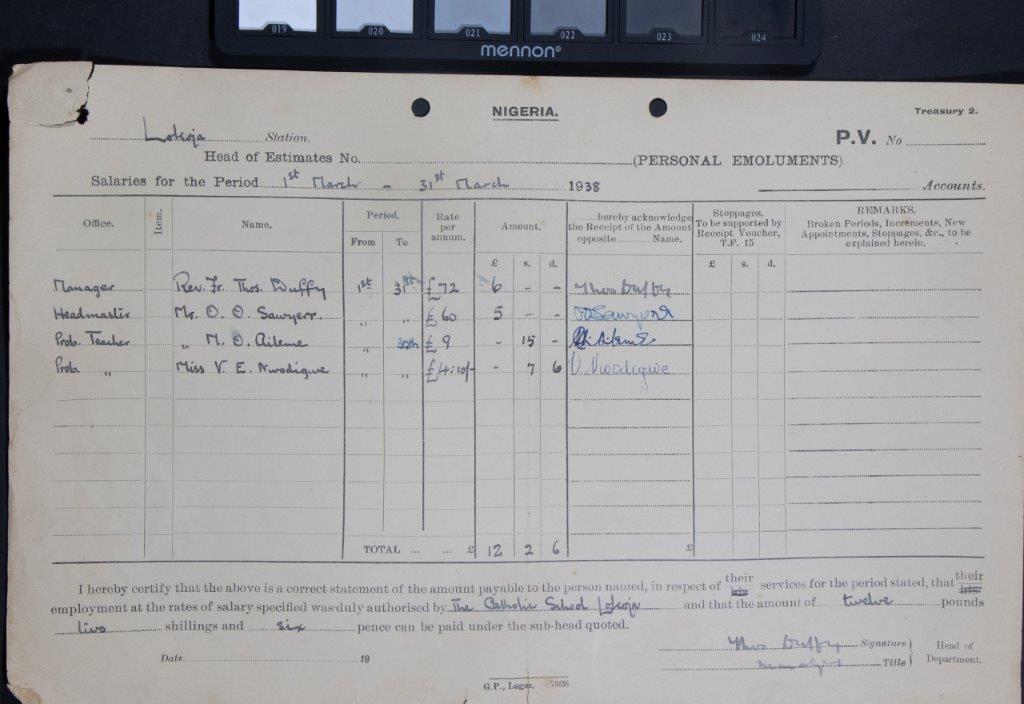 019 020 021 022 023 024
mennon®
NIGERIA.
Treasury 2.
Lokoja Station.
P.V. No
Head of Estimates No. (PERSONAL EMOLUMENTS)
Salaries for the Period 1st March - 31st March 1938 Accounts.
Office. Item. Name. Period. From To Rate per annum. Amount. £ s. d. hereby acknowledge the Receipt of the Amount opposite Name. Stoppages. To be supported by Receipt Voucher, T.F. 15 £ s. d. REMARKS. Broken Periods, Increments, New Appointments, Stoppages, &c., to be explained herein.
Manager Rev. Fr. Thos. Duffy 1st 31st £72 6 - - Thos Duffy
Headmaster Mr. O. O. Sawyerr. " " £60 5 - - Sawyerr
Prob. Teacher " M. O. Aileme " 30th £9 - 15 - Aileme
Prob. " Miss V. E. Nwodigwe " " £4:10/- - 7 6 V. Nwodigwe
TOTAL ... ... £ 12 2 6 £
I hereby certify that the above is a correct statement of the amount payable to the person named, in respect of their his services for the period stated, that their his
employment at the rates of salary specified was duly authorised by The Catholic School Lokoja and that the amount of twelve pounds
two shillings and six pence can be paid under the sub-head quoted.
Thos Duffy Signature
Manager Title
Head of Department.
Date 19
G.P., Lagos.